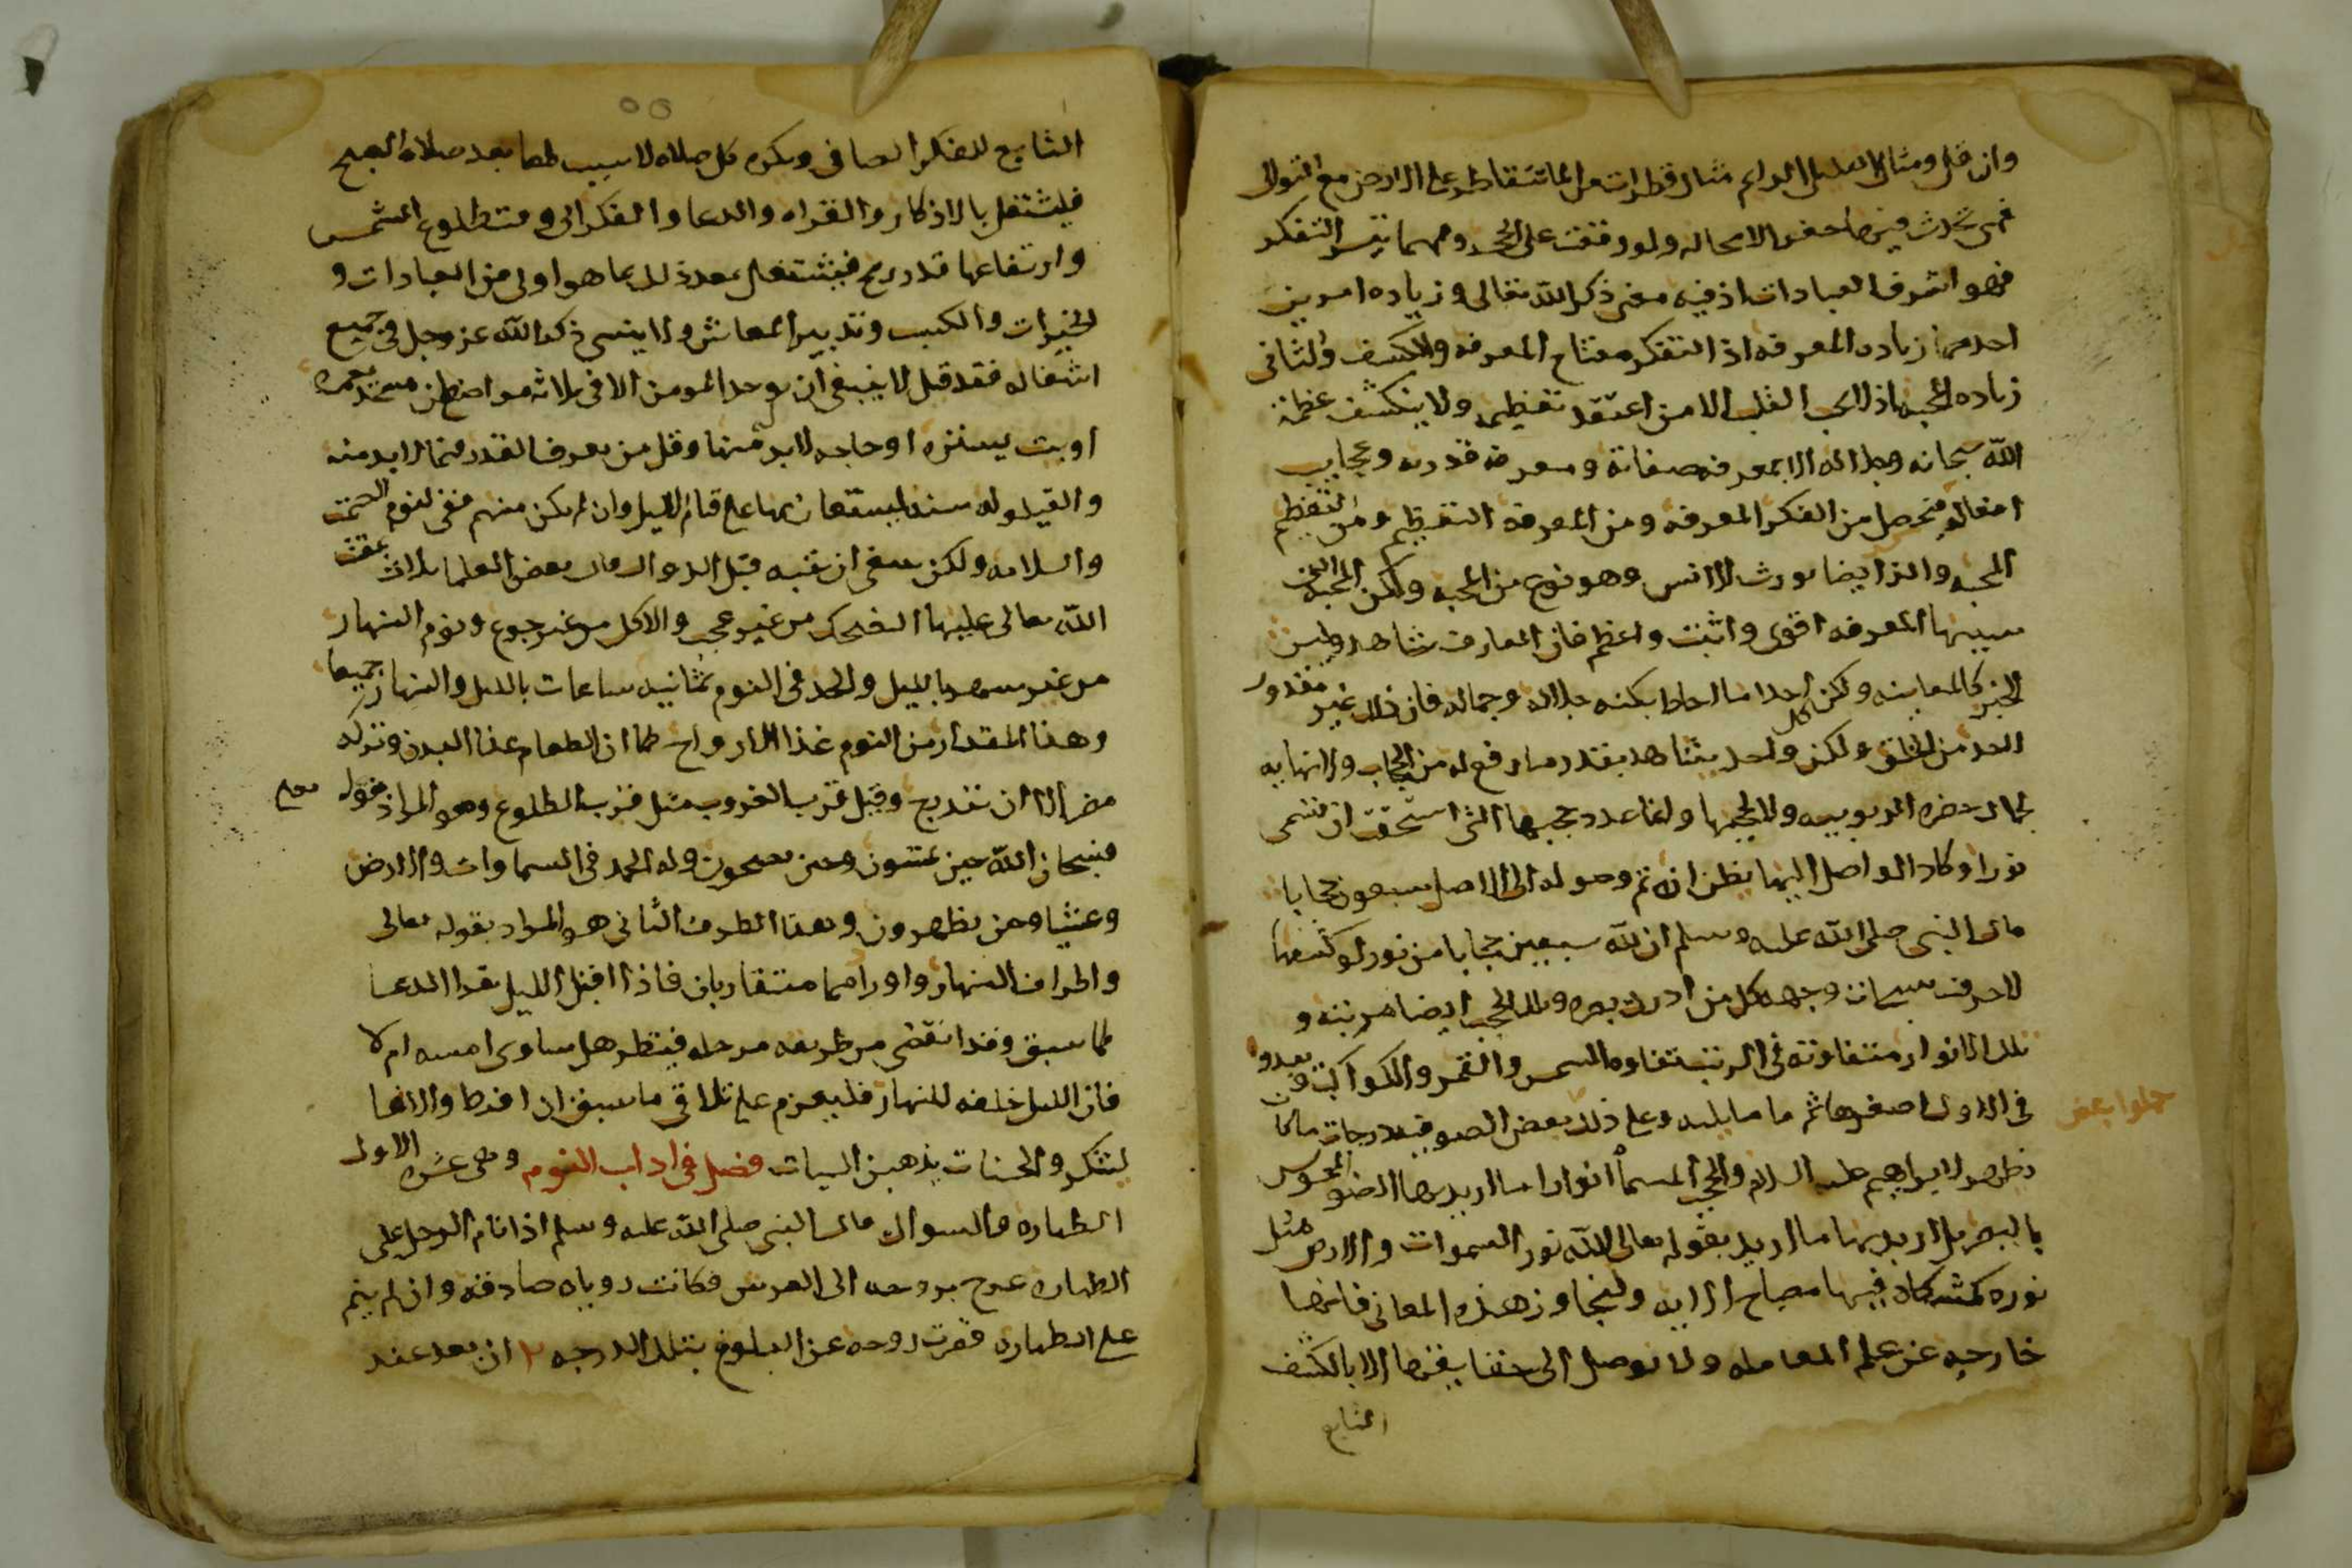 وان قل ومثال العمل الدايم مثال قطرات من الما تتقاطر على الارض مع التوالي
فهى تحدث فيها حفره لا محاله ولو وقعت على الحجر ومهما تيسر التفكر
فهو اشرف العبادات اذ فيه معنى ذكر الله تعالى وزياده امرين
احدهما زياده المعرفه اذ التفكر مفتاح المعرفه والكشف والثانى
زياده المحبه اذ لا يحب القلب الا من اعتقد تعظيمه ولا ينكشف عظمة
الله سبحانه وجلاله الا بمعرفه صفاته ومعرفه قدرته وعجايب
افعاله فتحصل من الفكر المعرفه ومن المعرفه التعظيم ومن التعظيم
المحبه والذكر ايضا يورث الانس وهو نوع من المحبه ولكن المحبه التى
سببها المعرفه اقوى واثبت واعظم فان العارف شاهد وليس
الخبر كالمعاينه ولكن احدا ما احاط بكنه جلاله وجماله فان ذلك غير مقدور
لاحد من الخلق ولكن كل واحد يشاهد بقدر ما رفع له من الحجاب ولا نهايه
لجمال حضره الربوبيه ولا لحجبها وانما عدد حجبها التى استحقت ان تسمى
نورا وكاد الواصل اليها يظن انه تم وصوله الى الاصل سبعون حجابا
قال النبى صلى الله عليه وسلم ان لله سبعين حجابا من نور لو كشفها
لاحرقت سبحات وجهه كل من ادرك بصره وتلك الحجب ايضا مرتبه و
تلك الانوار متفاوته فى الرتب تفاوت الشمس والقمر والكواكب ويبدو
فى الاول اصغرها ثم ما يليه وعلى ذلك بعض الصوفيه درجات ما كان
حملوا بعض
يظهر لابراهيم عليه السلام والحجب المسماة انوارا ما اريد بها الضو المحسوس
بالبصر بل اريد بها ما اريد بقوله تعالى الله نور السموات والارض مثل
نوره كمشكاة فيها مصباح الايه ولنجاوز هذه المعانى فانها
خارجه عن علم المعامله ولا يوصل الى حقايقها الا بالكشف
التابع
٥٥
التابع للفكر الصافى ويكره كل صلاه لا سبب لها بعد صلاه الصبح
فليشتغل بالاذكار والقراه والدعا والفكر الى وقت طلوع الشمس
وارتفاعها قدر رمح فيشتغل بعد ذلك بما هو اولى من العبادات و
الخيرات والكسب وتدبير المعاش ولا ينسى ذكر الله عز وجل فى جميع
اشغاله فقد قيل لا ينبغى ان يوجد المومن الا فى ثلاثه مواضع مسجد يعمره
او بيت يستره او حاجه لابد منها وقل من يعرف القدر فيما لابد منه
والقيلوله سنه ليستعان بها على قيام الليل وان لم يكن منهم ففى النوم الصمت
والسلامه ولكن ينبغى ان يتنبه قبل الزوال وقال بعض العلما ثلاث يمقت
الله تعالى عليها الضحك من غير عجب والاكل من غير جوع ونوم النهار
من غير سهر بالليل والحد فى النوم ثمانيه ساعات بالليل والنهار جميعا
وهذا المقدار من النوم غذا الارواح كما ان الطعام غذا البدن وتركه
مضر الا ان تدريج وقبل قرب الغروب مثل قرب الطلوع وهو المراد بقوله تعالى
فسبحان الله حين تمسون وحين تصبحون وله الحمد فى السماوات والارض
وعشيا وحين تظهرون وهذا الطرف الثانى هو المراد بقوله تعالى
واطراف النهار واورادهما متقاربان فاذا اقبل الليل بقدا الدعا
كما سبق وقد انقضى من طريقه مرحله فينظر هل ساوى امسه ام لا
فان الليل خلفه للنهار فليعزم على تلافى ما سبق ان افرط والا فها
ليشكر والحسنات يذهبن السيات فصل فى اداب النوم وهى عشره الاول
الطهاره والسواك قال النبى صلى الله عليه وسلم اذا نام الرجل على
الطهاره عرج بروحه الى العرش فكانت روياه صادقه وان لم ينم
على الطهاره قصرت روحه عن البلوغ بتلك الدرجه ٢ ان يعد عند